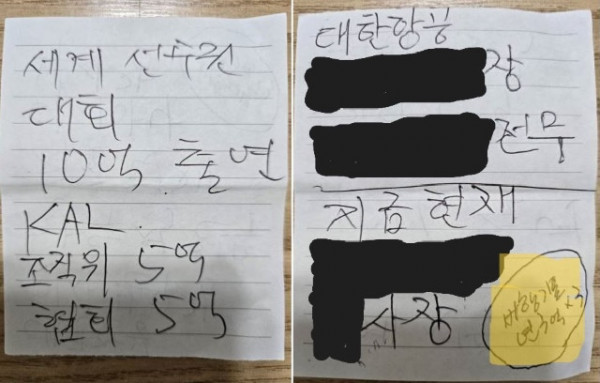 세계 선수권
대회
10억 출연
KAL.
조직위 5억
협회 5억
대한항공
장
전무
지금 현재
사장
연 3억 ×3